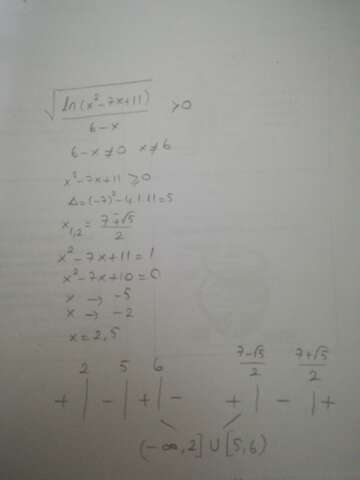 √(ln(x²-7x+11) / 6-x) >0
6-x≠0 x≠6
x²-7x+11 ≥0
Δ=(-7)²-4.1.11=5
x₁,₂= 7±√5 / 2
x²-7x+11=1
x²-7x+10=0
x → -5
x → -2
x=2,5
2 5 6 7-√5 / 2 7+√5 / 2
+ | - | + | - + | - | +
(-∞,2]∪[5,6)